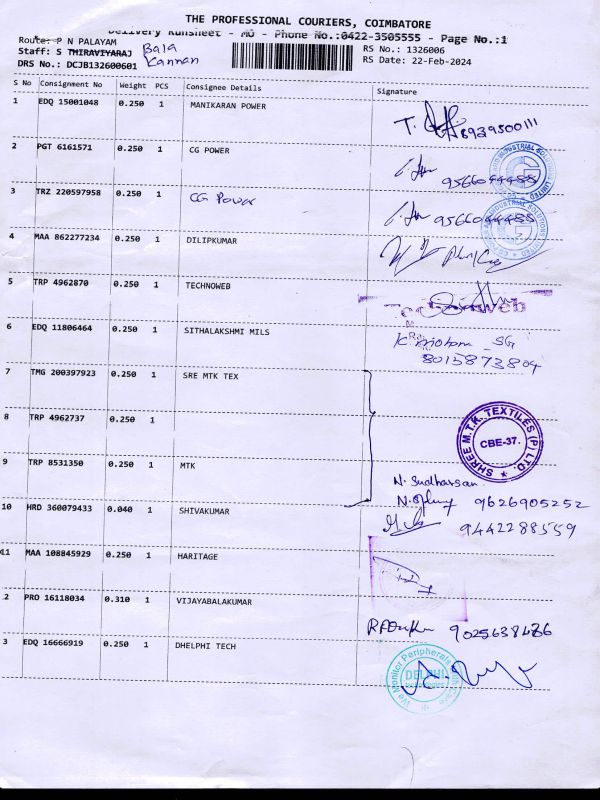 THE PROFESSIONAL COURIERS, COIMBATORE
Delivery Runsheet - MO - Phone No.:0422-3505555 - Page No.:1
Route: P N PALAYAM
Staff: S THIRAVIYARAJ Bala
DRS No.: DCJB132600601 Kannan
RS No.: 1326006
RS Date: 22-Feb-2024
S No Consignment No Weight PCS Consignee Details Signature
1 EDQ 15001048 0.250 1 MANIKARAN POWER
8939500111
2 PGT 6161571 0.250 1 CG POWER
9566044488
3 TRZ 220597958 0.250 1 CG Power
9566044488
4 MAA 862277234 0.250 1 DILIPKUMAR
5 TRP 4962870 0.250 1 TECHNOWEB
6 EDQ 11806464 0.250 1 SITHALAKSHMI MILS
SG
8015873809
7 TMG 200397923 0.250 1 SRE MTK TEX
8 TRP 4962737 0.250 1
SHREE M.T.K. TEXTILES (P) LTD.
CBE-37.
9 TRP 8531350 0.250 1 MTK
N. Sudharsan
9626905252
10 HRD 360079433 0.040 1 SHIVAKUMAR
9442288559
11 MAA 108845929 0.250 1 HARITAGE
2 PRO 16118034 0.310 1 VIJAYABALAKUMAR
9025638486
3 EDQ 16666919 0.250 1 DHELPHI TECH
We Monitor Peripherals With Care
DELPHI